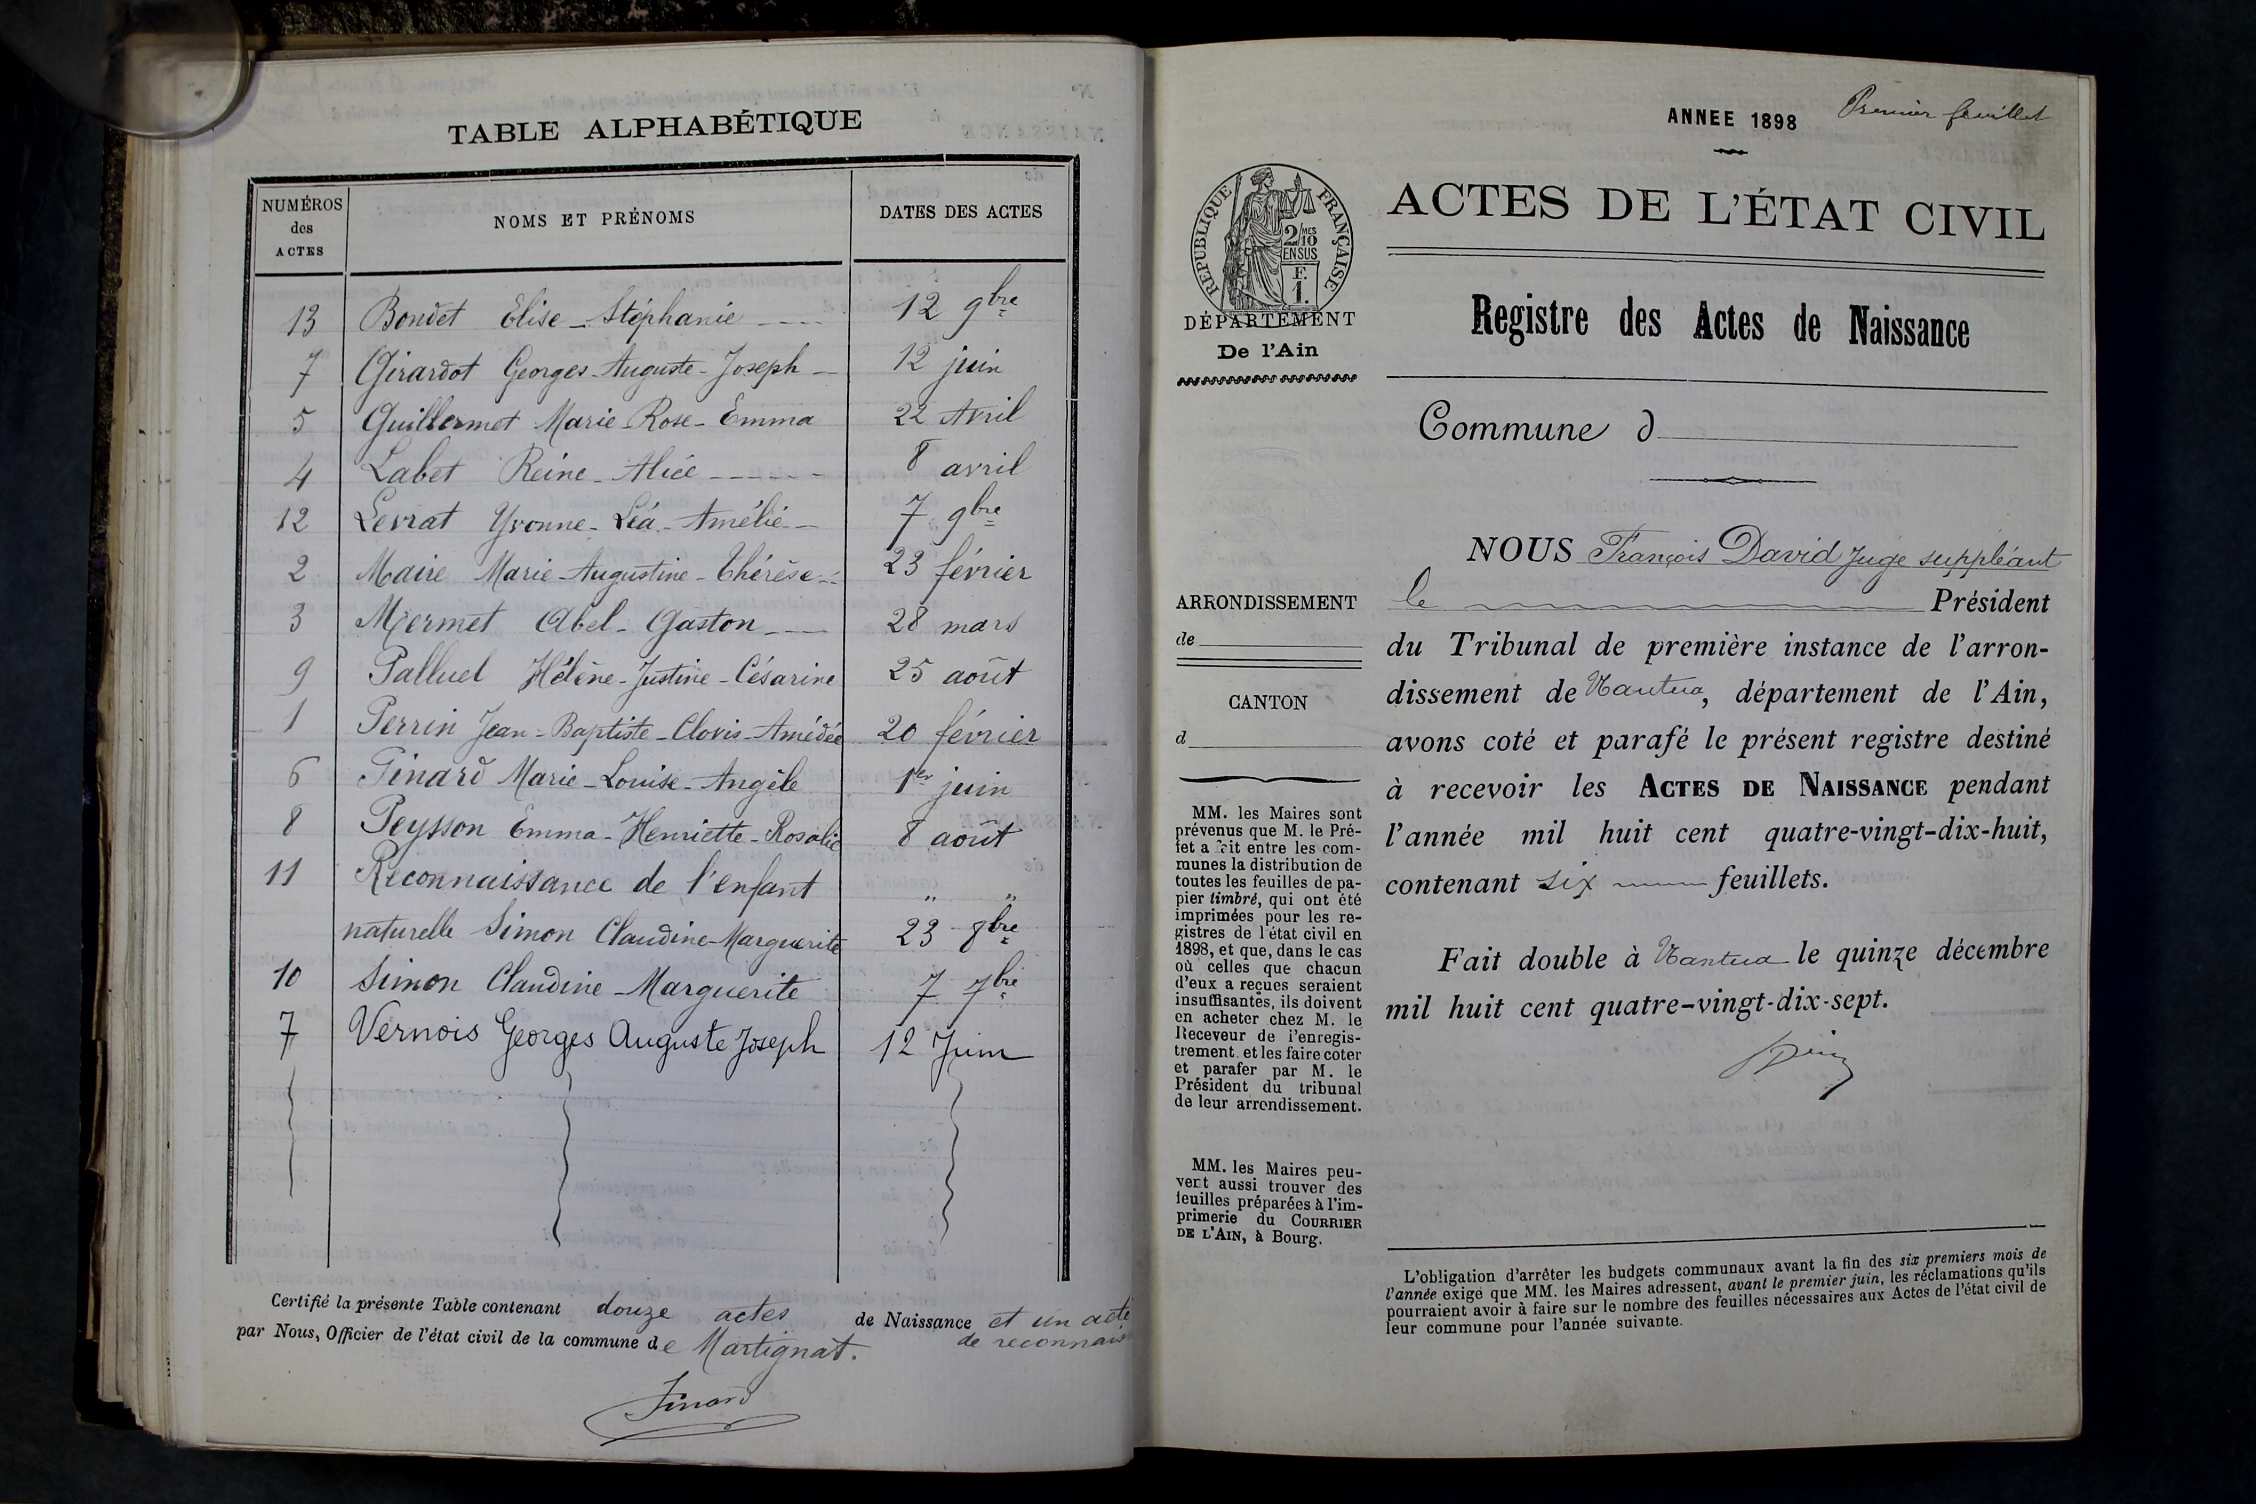 TABLE ALPHABÉTIQUE
NUMÉROS des ACTES | NOMS ET PRÉNOMS | DATES DES ACTES
13 Bondet Elise - Stéphanie 12 9bre
7 Girardot Georges - Auguste - Joseph 12 juin
5 Guillermet Marie - Rose - Emma 22 Avril
4 Labet Reine - Alice 8 avril
12 Levrat Yvonne - Léa - Amélie 7 9bre
2 Maire Marie - Augustine - Thérèse 23 février
3 Mermet Abel - Gaston 28 mars
9 Palluel Hélène - Justine - Césarine 25 août
1 Perrin Jean - Baptiste - Clovis - Amédée 20 février
6 Pinard Marie - Louise - Angèle 1er juin
8 Peysson Emma - Henriette - Rosalie 8 août
11 Reconnaissance de l'enfant " "
naturelle Simon Claudine - Marguerite 23 8bre
10 Simon Claudine - Marguerite 7 7bre
7 Vernois Georges Auguste Joseph 12 Juin
Certifié la présente Table contenant douze actes de Naissance et un acte
par Nous, Officier de l'état civil de la commune de Martignat. de reconnais
Pinard
ANNEE 1898 Premier feuillet
REPUBLIQUE FRANÇAISE
2/10 MES
EN SUS
F.
1.
DÉPARTEMENT
De l'Ain
ACTES DE L'ÉTAT CIVIL
Registre des Actes de Naissance
Commune d
ARRONDISSEMENT
de
CANTON
d
MM. les Maires sont
prévenus que M. le Pré-
fet a fait entre les com-
munes la distribution de
toutes les feuilles de pa-
pier timbré, qui ont été
imprimées pour les re-
gistres de l'état civil en
1898, et que, dans le cas
où celles que chacun
d'eux a reçues seraient
insuffisantes, ils doivent
en acheter chez M. le
Receveur de l'enregis-
trement et les faire coter
et parafer par M. le
Président du tribunal
de leur arrondissement.
MM. les Maires peu-
vent aussi trouver des
feuilles préparées à l'im-
primerie du COURRIER
DE L'AIN, à Bourg.
NOUS François David Juge suppléant
le Président
du Tribunal de première instance de l'arron-
dissement de Nantua, département de l'Ain,
avons coté et parafé le présent registre destiné
à recevoir les ACTES DE NAISSANCE pendant
l'année mil huit cent quatre-vingt-dix-huit,
contenant six feuillets.
Fait double à Nantua le quinze décembre
mil huit cent quatre-vingt-dix-sept.
L'obligation d'arrêter les budgets communaux avant la fin des six premiers mois de
l'année exige que MM. les Maires adressent, avant le premier juin, les réclamations qu'ils
pourraient avoir à faire sur le nombre des feuilles nécessaires aux Actes de l'état civil de
leur commune pour l'année suivante.